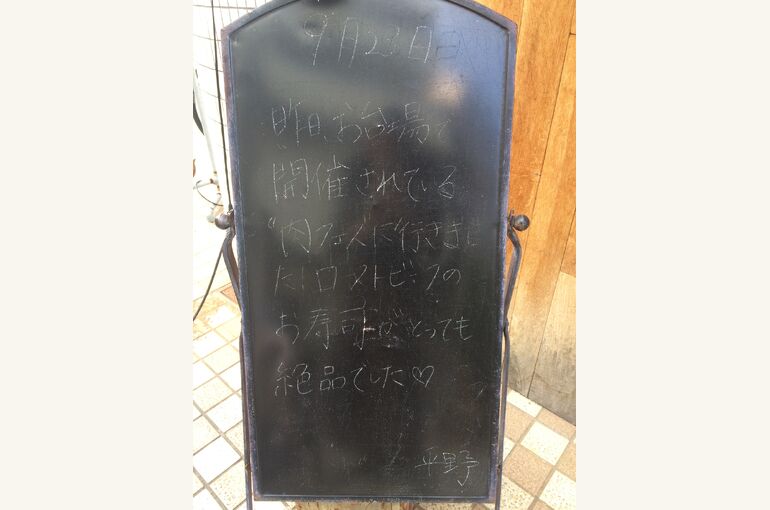 9月23日
昨日、お台場で
開催されている
"肉フェス"に行きまし
た!ローストビーフの
お寿司がとっても
絶品でした♡
平野